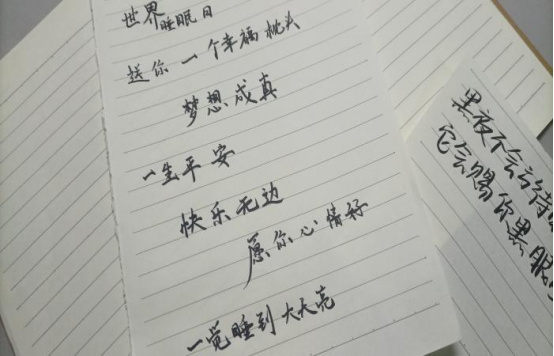 世界睡眠日
送你一个幸福枕头
梦想成真
一生平安
快乐无边
愿你心情好
一觉睡到大天亮
黑夜不会亏待
它会赐你黑眼